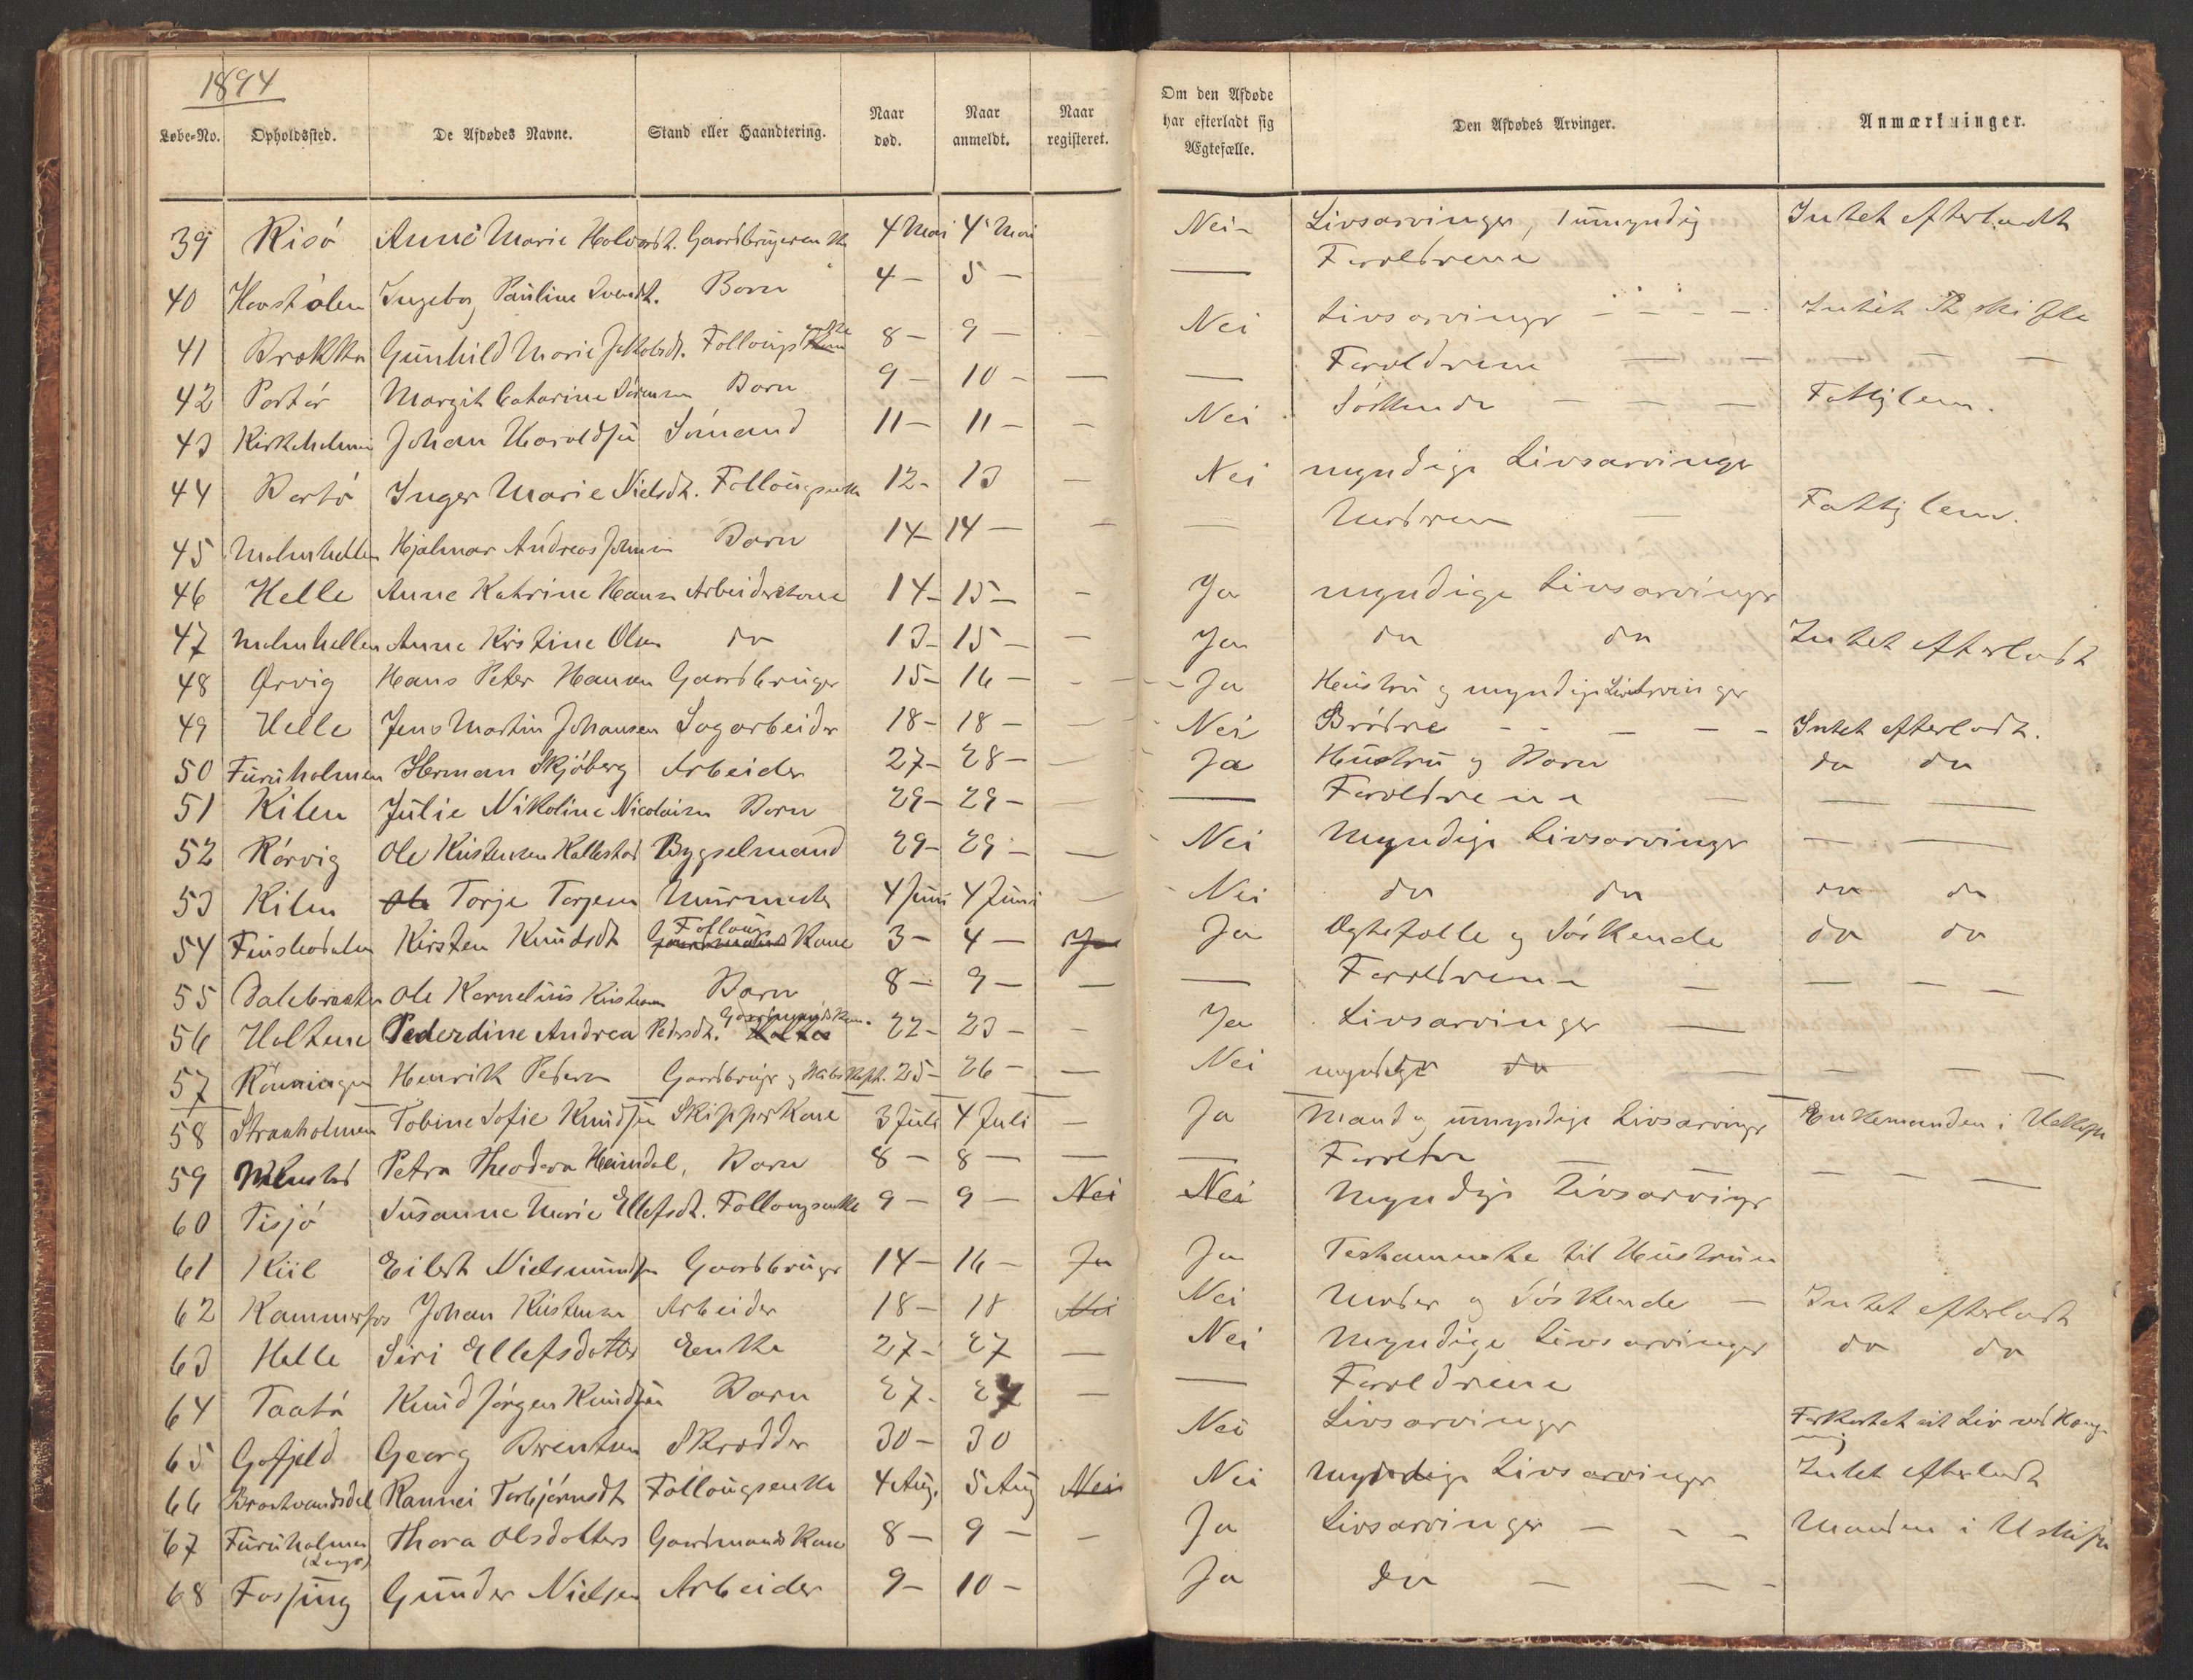 1894
Løbe-No. Opholdssted. De Afdødes Navne. Stand eller Haandtering. Naar død. Naar anmeldt. Naar registeret. Om den Afdøde har efterladt sig Ægtefælle. Den Afdødes Arvinger. Anmærkninger.
39 Risö Anne Marie Halvordt. Gaardbrugerenke 4 Mai 4 Mai Nei Livsarvinger, 1 umyndig Intet efterladt
40 Ingeborg Pauline Svendt. Barn 4 — 5 — — Foreldrene
41 Gunhild Marie Jakobsdt. Follougsenke 8 — 9 — Nei Livsarvinger — — — Intet At skifte
42 Portör Margit Catarine Sörensen Barn 9 — 10 — — — Foreldrene — — — — —
43 Kirkeholmen Johan Haraldsen Sömand 11 — 11 — — Nei Söskende — — — Fattiglem.
44 Bertö Inger Marie Nielsdt. Follougsenke 12 - 13 — Nei myndige Livsarvinger
45 Malmhellen Hjalmar Andreas Johnsen Barn 14 — 14 — — — Moderen — Fattiglem.
46 Helle Anne Katrine Hansen Arbeiderkone 14 — 15 — — Ja myndige Livsarvinger
47 Malmhellen Anne Kristine Olsen do 13 — 15 — — Ja do do Intet efterladt
48 Ørvig Hans Peter Hansen Gaardbruger 15 — 16 — — Ja Hustru og myndige Livsarvinger
49 Helle Jens Martin Johansen Sagarbeider 18 — 18 — — Nei Brödre — — — — Intet efterladt.
50 Furuholmen Herman Skjöberg Arbeider 27 — 28 — — Ja Hustru og Barn do do
51 Kilen Julie Nikoline Nicolaisen Barn 29 — 29 — — — Foreldrene — — —
52 Rörvig Ole Kristensen Kallestad Bygselmand 29 — 29 — — Nei Myndige Livsarvinger — —
53 Kilen Ole Torje Torjesen Murmester 4 Juni 4 Juni — Nei do do do do
54 Kirsten Knudsdt Follougs Gaardmands Kone 3 — 4 — Ja Ja Ægtefælle og Söskende do do
55 Dalebraaten Ole Kornelius Kristensen Barn 8 — 9 — — — Foreldrene — — — —
56 Holtene Pederdine Andrea Pedersdt. Gaardmands Kone. 22 — 23 — — Ja Livsarvinger —
57 Rönningen Henrik Pedersen Gaardbruger og Skibskapt. 25 — 26 — — Nei myndige do — — — —
58 Straaholmen Tobine Sofie Knudsen Skipperkone 3 Juli 4 Juli — Ja Mand og umyndige Livsarvinger Enkemanden i
59 Petra Theodora Heimdal, Barn 8 — 8 — — — — — — —
60 Tisjö Susanne Marie Ellefsdt. Follougsenke 9 — 9 — Nei Nei Myndige Livsarvinger
61 Kiil Eilert Nielsmundsen Gaardbruger 14 — 16 — Ja Ja Testamente til Hustruen
62 Kammerfos Johan Kristensen Arbeider 18 — 18 Nei Nei Moder og Söskende — Intet efterladt
63 Helle Siri Ellefsdatter Enke 27 — 27 — Nei Myndige Livsarvinger do do
64 Taatö Knud Jörgen Knudsen Barn 27 - 27 — — Foreldrene
65 Gofjeld Georg Brentsen Skrædder 30 — 30 Nei Livsarvinger Forkortet sit Liv ved Hængning
66 Braatvandsdal Rannei Torbjörnsdt Follougsenke 4 Aug. 5 Aug Nei Nei Myndige Livsarvinger Intet efterladt
67 Furuholmen (Langö) Thora Olsdotter Gaardmands Kone 8 — 9 — — Ja Livsarvinger — — — Manden i Uskifte
68 Fossing Gunder Nielsen Arbeider 9 — 10 — Ja do — — —